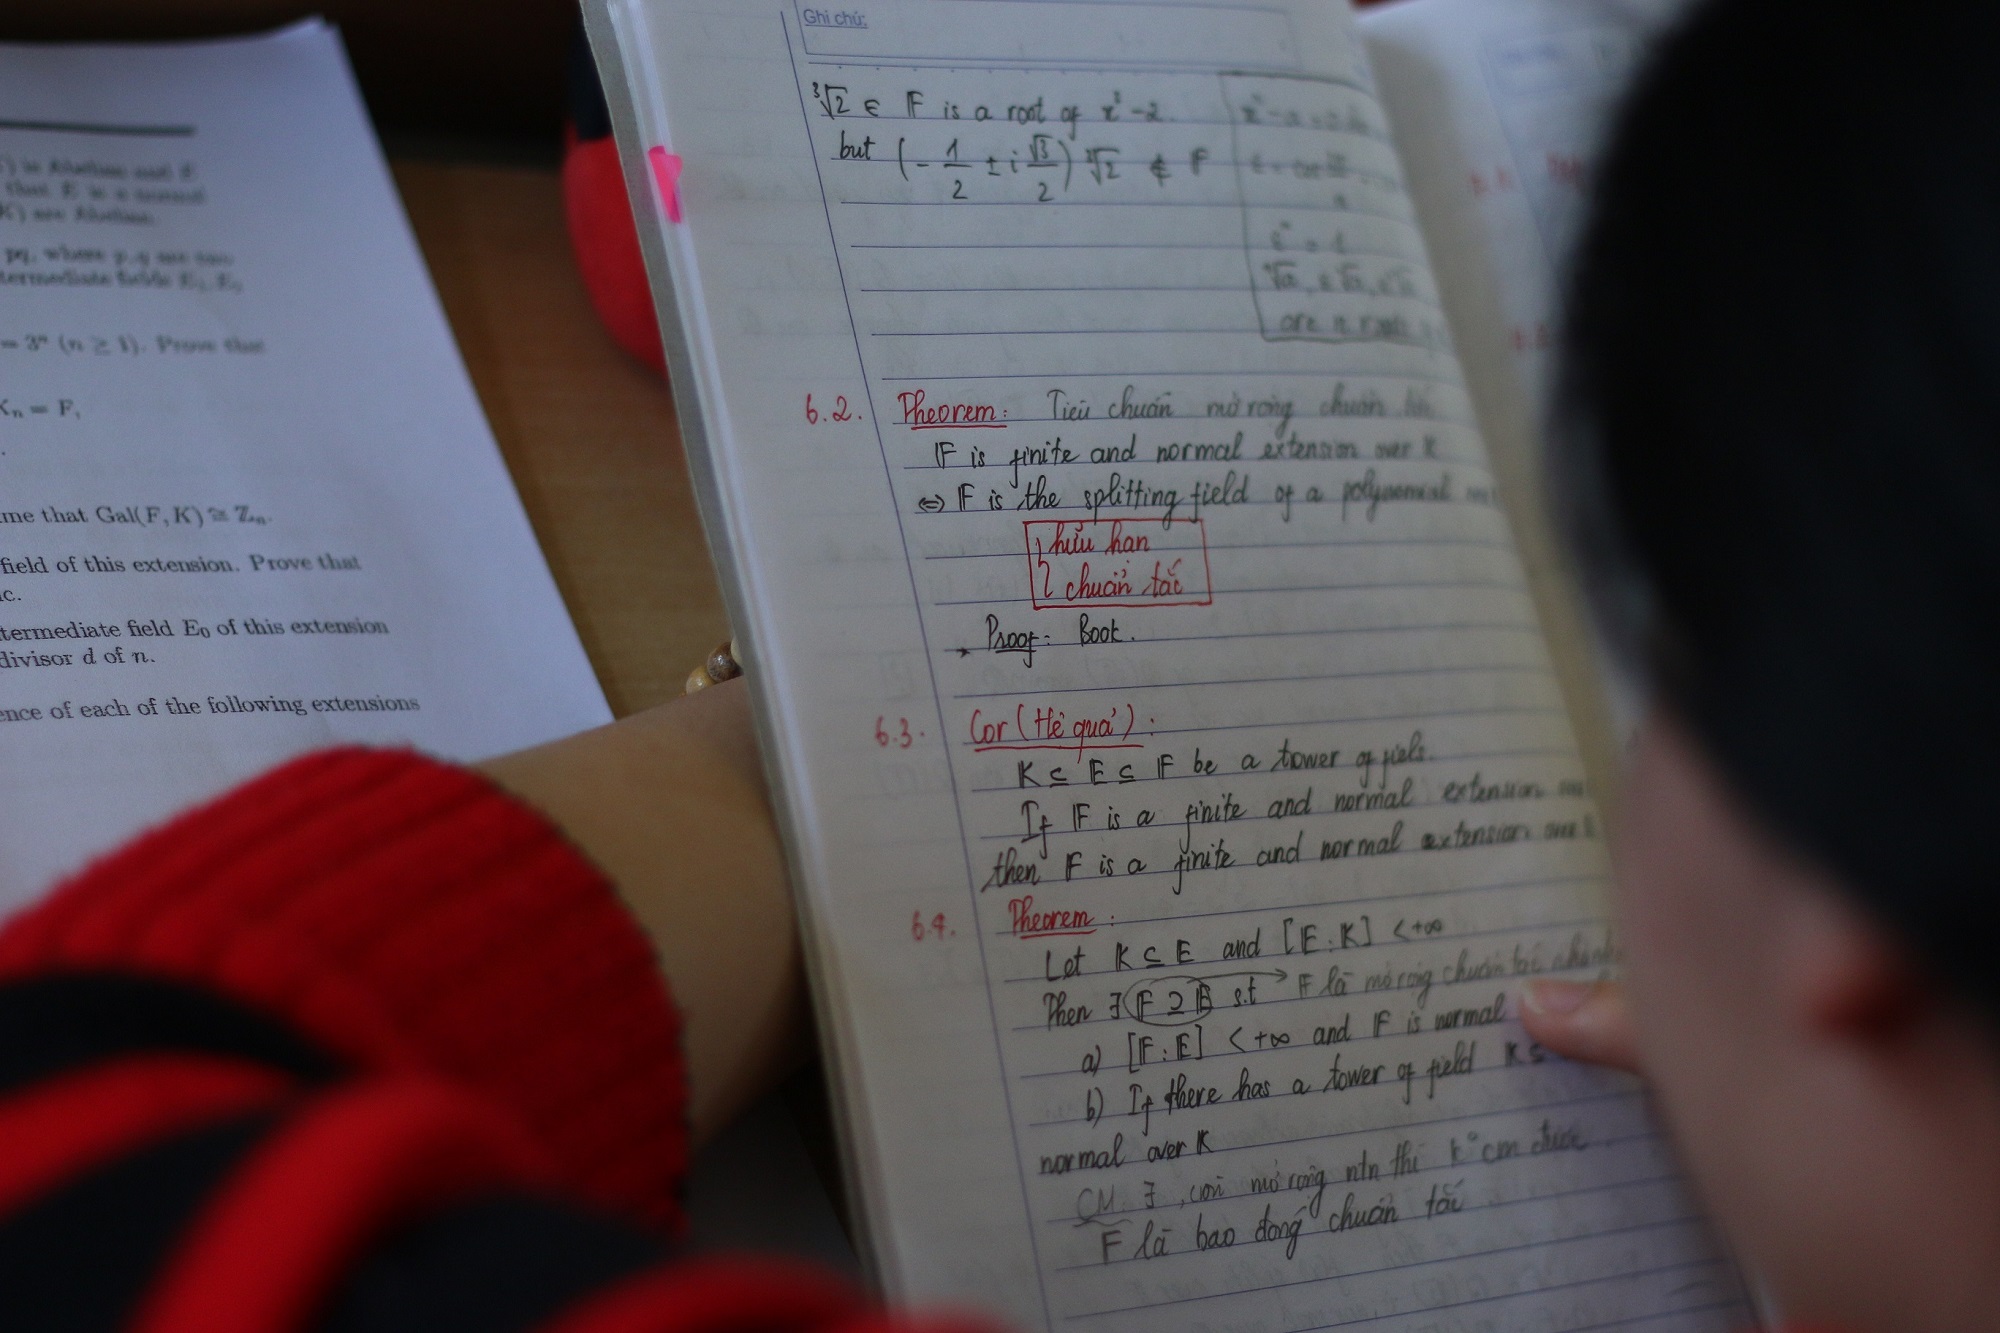 that E is a normal
K) are Abelian.
pq, where p, q are two
termediate fields E₁, E₂
= 3ⁿ (n ≥ 1). Prove that
Kₙ = F,
me that Gal(F, K) ≅ ℤₙ.
field of this extension. Prove that
c.
termediate field E₀ of this extension
divisor d of n.
ence of each of the following extensions
Ghi chú:
∛2 ∈ F is a root of x³-2.
but (-1/2 ± i √3/2) ∛2 ∉ F
are n roots
6.2. Theorem: Tiêu chuẩn mở rộng chuẩn tắc
F is finite and normal extension over K
⇔ F is the splitting field of a polynomial
1 hữu hạn
2 chuẩn tắc
Proof: Book.
6.3. Cor (Hệ quả):
K ⊆ E ⊆ F be a tower of fiels.
If F is a finite and normal extension
then F is a finite and normal extension over
6.4. Theorem:
Let K ⊆ E and [E:K] < +∞
Then ∃ F ⊇ E s.t → F là mở rộng chuẩn tắc
a) [F:E] < +∞ and F is normal
b) If there has a tower of field K ⊆
normal over K
CM ∃, còn mở rộng ntn thì k° cm được
F là bao đóng chuẩn tắc